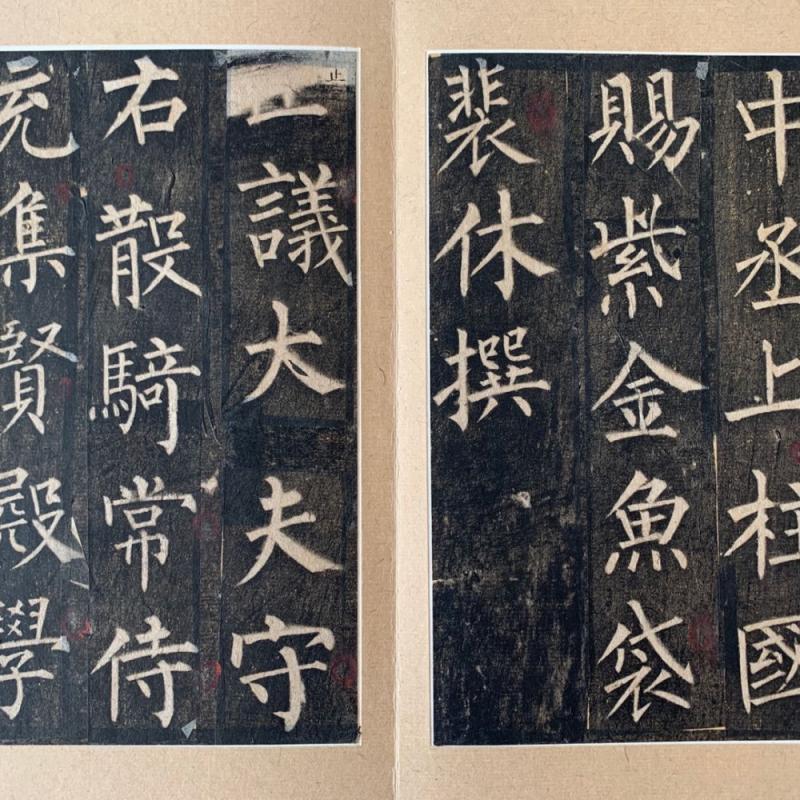 中丞上柱國
賜紫金魚袋
裴休撰
議大夫守
右散騎常侍
充集賢殿學